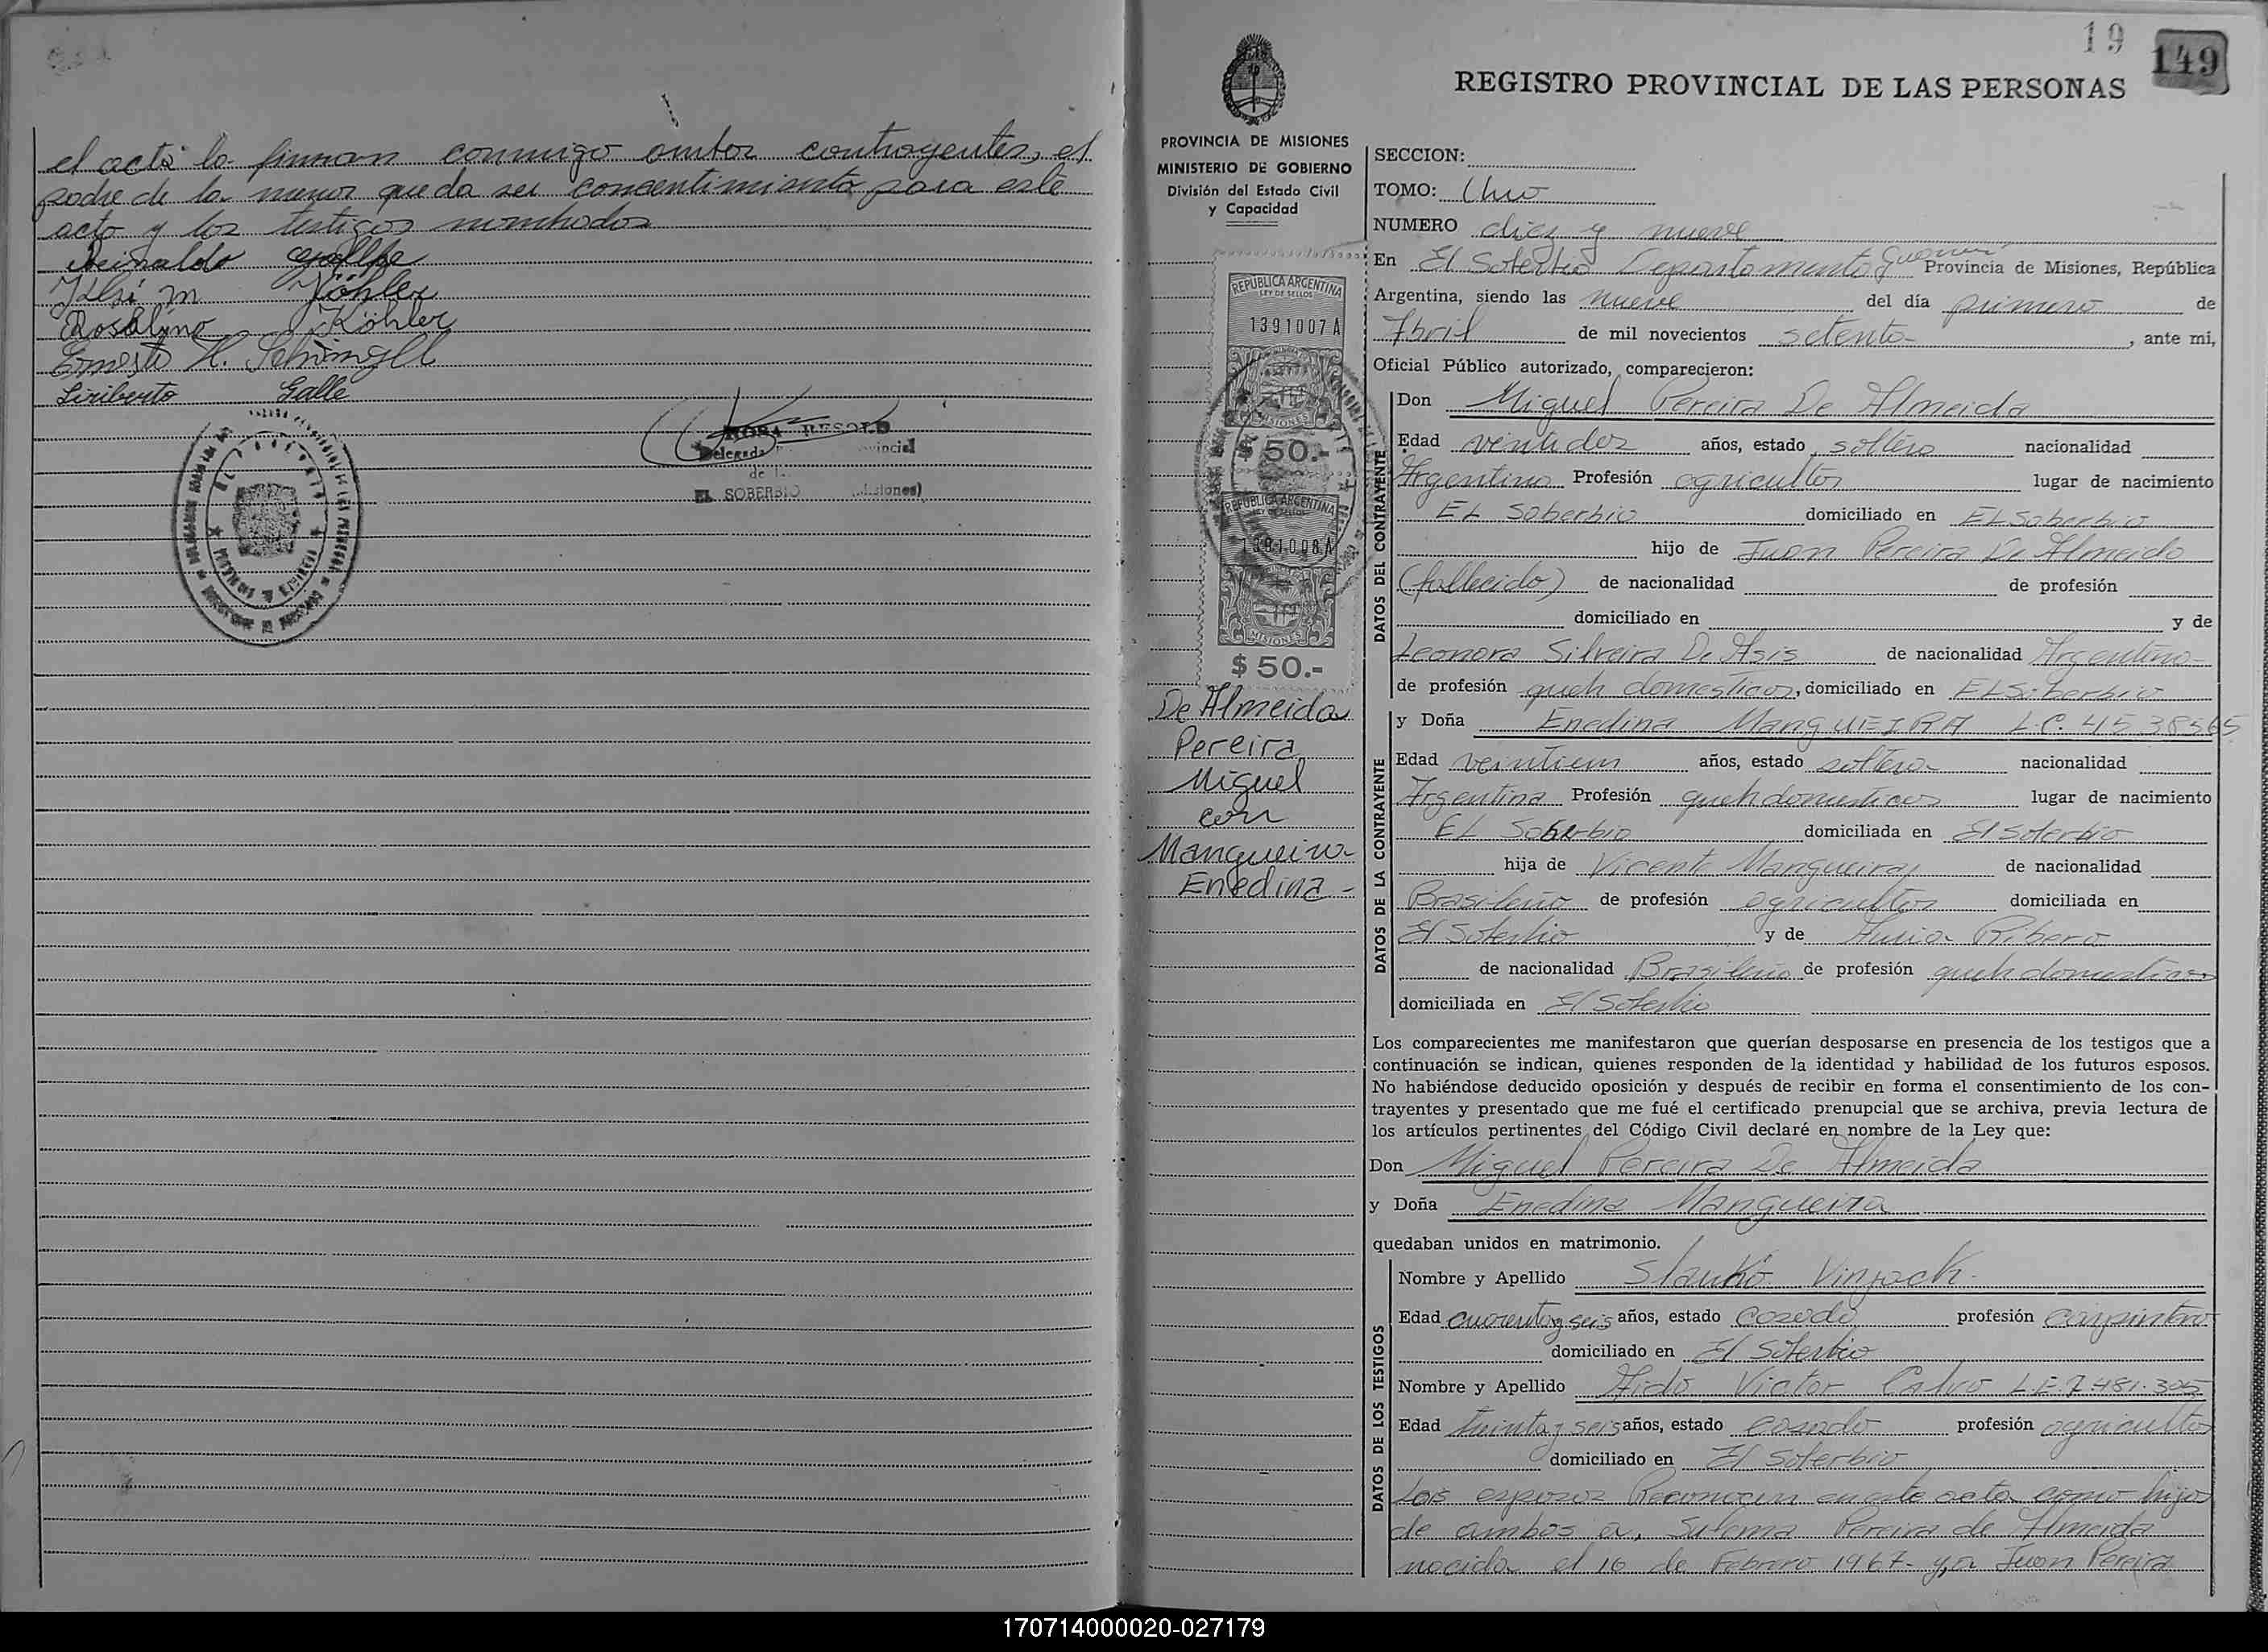 el acta la firman conmigo ambos contrayentes, el
padre de la menor que da su consentimiento para este
acto y los testigos nombrados
Reinaldo Galle
Ilsi M Köhler
Rosalino Köhler
Ernesto H.
Liriberto Galle
EL SOBERBIO
19
149
REGISTRO PROVINCIAL DE LAS PERSONAS
PROVINCIA DE MISIONES
MINISTERIO DE GOBIERNO
División del Estado Civil
y Capacidad
REPUBLICA ARGENTINA
LEY DE SELLOS
1391007 A
MISIONES
$ 50.-
REPUBLICA ARGENTINA
LEY DE SELLOS
1391008 A
MISIONES
$ 50.-
De Almeida
Pereira
Miguel
con
Mangueira
Enedina -
SECCION:
TOMO: Uno
NUMERO diez y nueve
En El Soberbio Departamento Guaraní Provincia de Misiones, República
Argentina, siendo las nueve del día primero de
Abril de mil novecientos setenta , ante mi,
Oficial Público autorizado, comparecieron:
DATOS DEL CONTRAYENTE
Don Miguel Pereira De Almeida
Edad veintidos años, estado soltero nacionalidad
Argentino Profesión agricultor lugar de nacimiento
EL Soberbio domiciliado en EL Soberbio
hijo de Juan Pereira De Almeida
(fallecido) de nacionalidad de profesión
domiciliado en y de
Leonora Silveira De Asis de nacionalidad Argentina
de profesión queh domesticos, domiciliado en EL Soberbio
DATOS DE LA CONTRAYENTE
y Doña Enedina MangUEIRA L.C. 4538565
Edad veintiun años, estado soltera nacionalidad
Argentina Profesión queh domesticos lugar de nacimiento
EL Soberbio domiciliada en El Soberbio
hija de Vicente Mangueira de nacionalidad
Brasileño de profesión agricultor domiciliado en
El Soberbio y de Ribero
de nacionalidad Brasileña de profesión queh domesticos
domiciliada en El Soberbio
Los comparecientes me manifestaron que querían desposarse en presencia de los testigos que a
continuación se indican, quienes responden de la identidad y habilidad de los futuros esposos.
No habiéndose deducido oposición y después de recibir en forma el consentimiento de los con-
trayentes y presentado que me fué el certificado prenupcial que se archiva, previa lectura de
los artículos pertinentes del Código Civil declaré en nombre de la Ley que:
Don Miguel Pereira De Almeida
y Doña Enedina Mangueira
quedaban unidos en matrimonio.
DATOS DE LOS TESTIGOS
Nombre y Apellido Slauko
Edad cuarenta y seis años, estado casado profesión carpintero
domiciliado en El Soberbio
Nombre y Apellido Aido Victor Calvo L.E 7.481.305
Edad treinta y seis años, estado casado profesión agricultor
domiciliado en El Soberbio
Los esposos Reconocen en este acto como hijos
de ambos a, Pereira de Almeida
nacida el 16 de Febrero 1967- y, a Juan Pereira
170714000020-027179